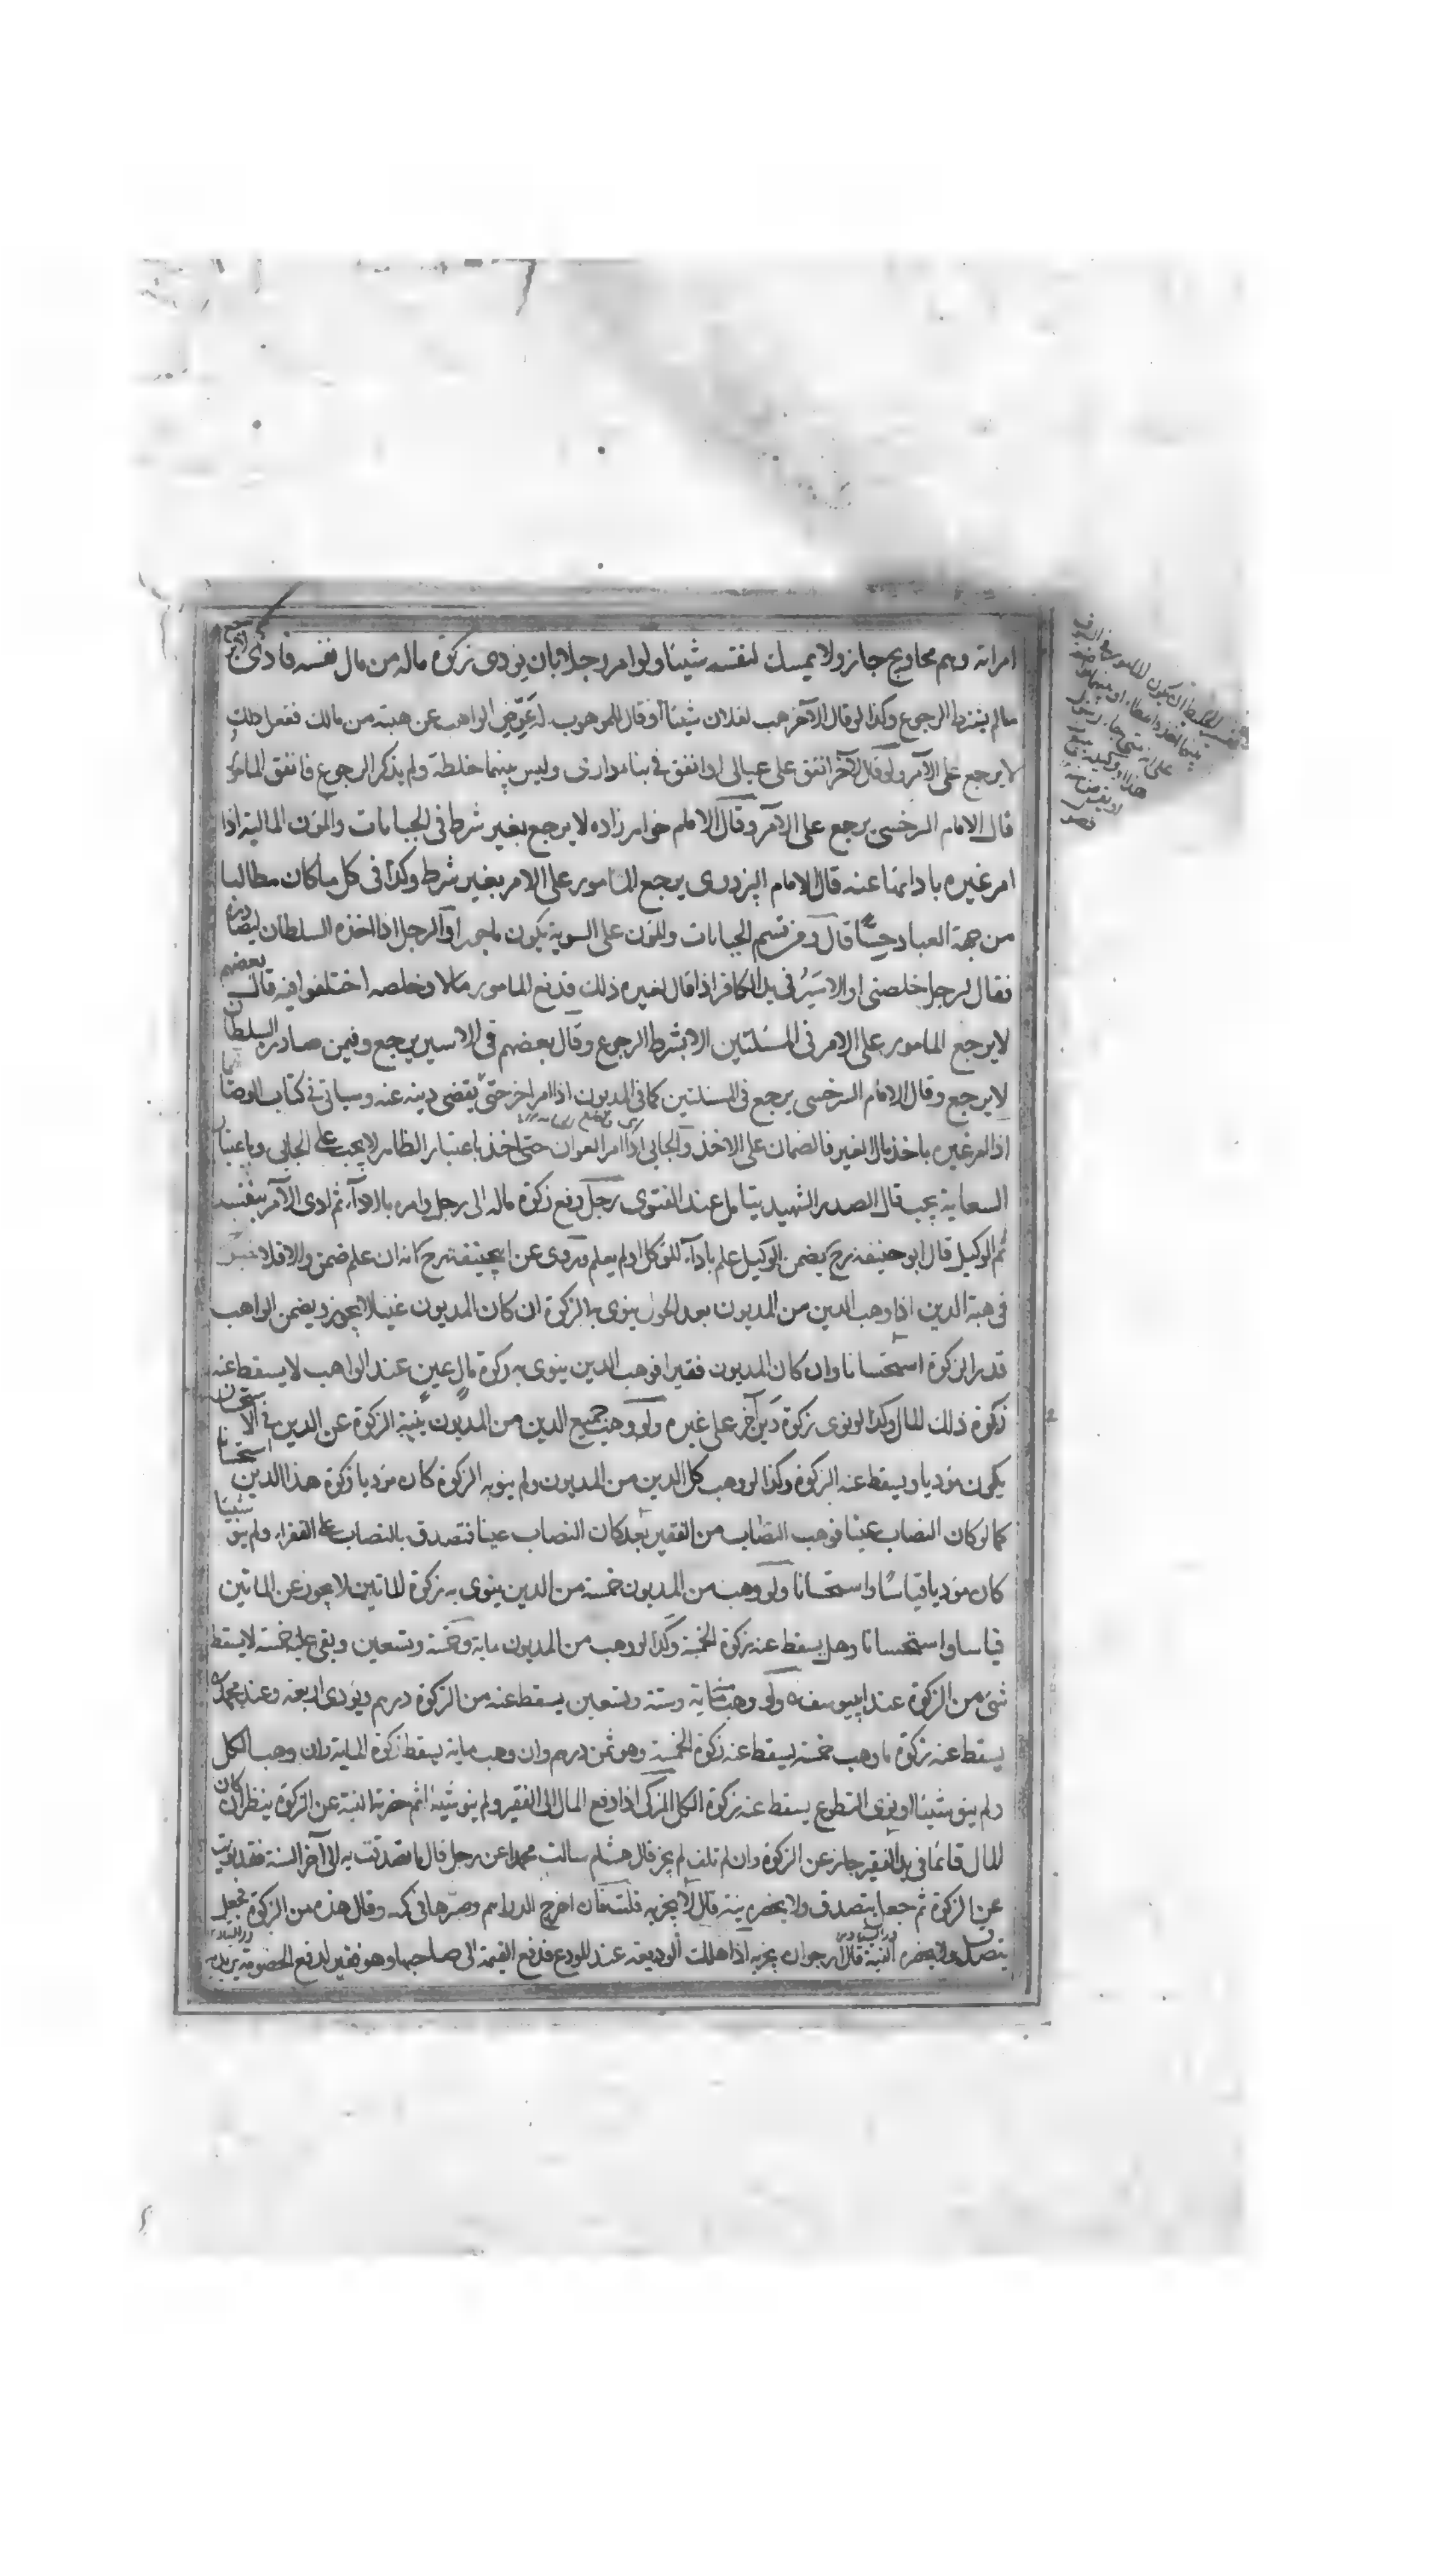 امراته وهم محاويج جاز ولا يمسك لنفسه شيئا ولو امر رجلا بان يؤدى زكوة ماله من مال نفسه فادى لا يرجع
مالم يشترط الرجوع وكذا لو قال لآخر هب لفلان شيئا او قال الموهوب له عوّض الواهب عن هبته من مالك ففعل ذلك
لا يرجع على الآمر ولو قال لآخر انفق على عيالى او انفق فى بناء دارى وليس بينهما خلطة ولم يذكر الرجوع فانفق المامور
قال الامام السرخسى يرجع على الآمر وقال الامام خواهرزاده لا يرجع بغير شرط فى الجبايات والمؤن المالية اذا
امر غيره باداءها عنه قال الامام البزدوى يرجع المامور على الامر بغير شرط وكذا فى كل ما كان مطالبا
من جهة العباد حسّا قال ومن قسم الجبايات والمؤن على السوية يكون ماجورا والرجل اذا اخذه السلطان ليصادره
فقال لرجل خلصنى او الاسير فى يد الكافر اذا قال لغيره ذلك فدفع المامور مالا وخلصه اختلفوا فيه قال بعضهم
لا يرجع المامور على الامر فى المسئلتين الا بشرط الرجوع وقال بعضهم فى الاسير يرجع وفيمن صادره السلطان
لا يرجع وقال الامام السرخسى يرجع فى المسئلتين كما فى المديون اذا امر اخر حتى يقضى دينه عنه وسياتى فى كتاب الوصايا
اذا امر غيره باخذ مال الغير فالضمان على الاخذ والجابى اذا امر العوان حتى اخذ باعتبار الظاهر لا يجب على الجابى وباعتبار
السعاية يجب قال الصدر الشهيد يتامل عند الفتوى رجل دفع زكوة ماله الى رجل وامره بالاداء ثم ادى الآمر بنفسه
ثم الوكيل قال ابو حنيفة رح يضمن الوكيل علم باداء الموكل او لم يعلم وروى عن ابيحنيفة رح انه ان علم ضمن والا فلا
فى هبة الدين اذا وهب الدين من المديون بعد الحول ينوى به الزكوة ان كان المديون غنيا لا يجوز ويضمن الواهب
قدر الزكوة استحسانا وان كان المديون فقيرا فوهب الدين ينوى به زكوة مال عين عند الواهب لا يسقط عنه
زكوة ذلك المال وكذا لو نوى زكوة دين آخر على غيره ولو وهب جميع الدين من المديون بنية الزكوة عن الدين فى الاستحسان
يكون مؤديا ويسقط عنه الزكوة وكذا لو وهب كل الدين من المديون ولم ينو به الزكوة كان مؤديا زكوة هذا الدين استحسانا
كما لو كان النصاب عينا فوهب النصاب من الفقير بعد كان النصاب عينا فتصدق بالنصاب على الفقراء ولم ينو شيئا
كان مؤديا قياسا واستحسانا ولو وهب من المديون خمسة من الدين ينوى به زكوة المائتين لا يجوز عن المائتين
قياسا واستحسانا وهل يسقط عنه زكوة الخمسة وكذا لو وهب من المديون ماية وخمسة وتسعين وبقى عليه خمسة لا يسقط
شئ من الزكوة عند ابيوسف ولو وهب ماية وستة وتسعين يسقط عنه من الزكوة درهم ويؤدى اربعة وعند محمد
يسقط عنه زكوة ما وهب خمسة يسقط عنه زكوة الخمسة وهو ثمن درهم وان وهب ماية يسقط زكوة الماية وان وهب الكل
ولم ينو شيئا او نوى التطوع يسقط عنه زكوة الكل المزكى اذا دفع المال الى الفقير ولم ينو شيئا ثم حضرته النية عن الزكوة ينظر ان كان
المال قائما فى يد الفقير جاز عن الزكوة وان تلف لم يجز قال هشام سالت محمدا عن رجل قال ما تصدقت به الى آخر السنة فقد نويت
عن الزكوة ثم جعل يتصدق ولا يحضره نية قال لا يجزيه قلت فان اخرج الدراهم وصرها فى كمه وقال هذه من الزكوة فجعل
يتصدق ولا يحضره النية قال ارجو ان يجزيه اذا هلكت الوديعة عند المودع فدفع القيمة الى صاحبها وهو فقير لدفع الخصومة يريد به